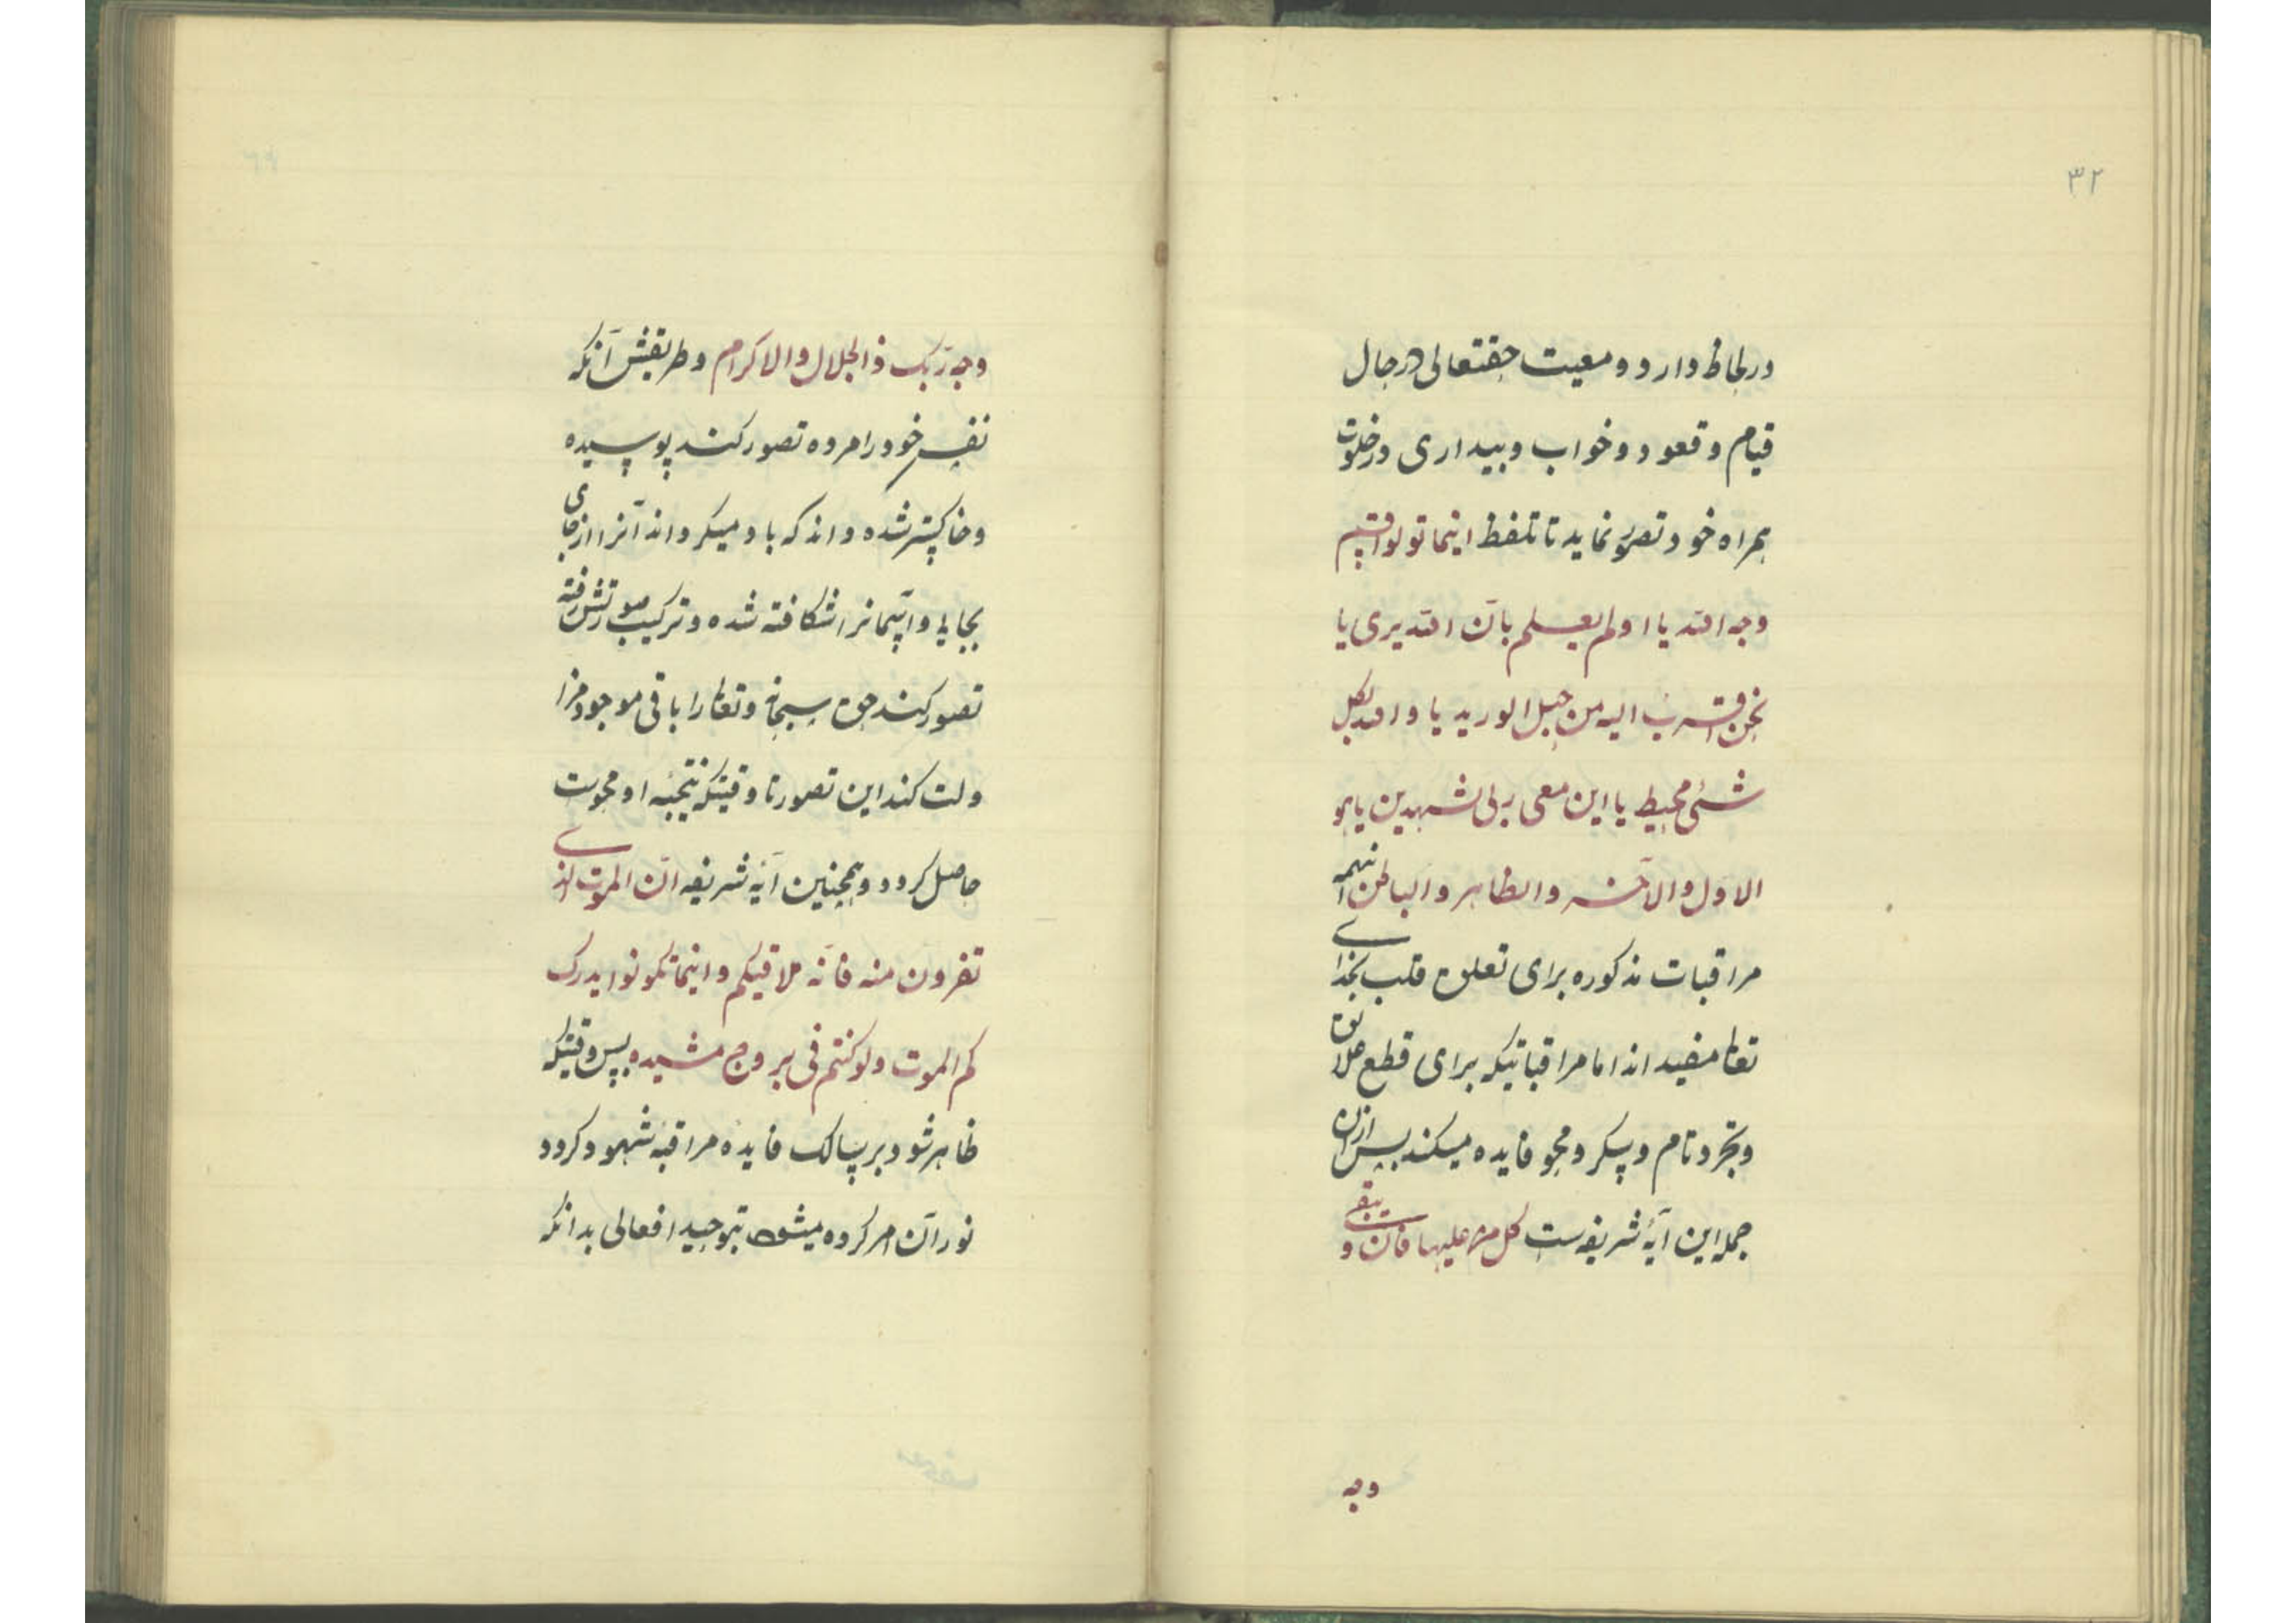 ۳۲
در لحاظ دارد و معیت حقتعالی در حال
قیام و قعود و خواب و بیداری در خلوت
همراه خود تصور نماید تا تلفظ اینما تولوا فثم
وجه الله یا اولم یعلم بان الله یری یا
نحن اقرب الیه من حبل الورید یا والله بکل
شئ محیط یا این معی ربی شهدین یا هو
الاول والآخر والظاهر والباطن اینهمه
مراقبات مذکوره برای تعلق قلب بخدای
تعالی مفید اند اما مراقباتیکه برای قطع علائق
و تجرد تام و سکر و محو فایده میکند پس ازان
جمله این آیهٔ شریفه ست کل من علیها فان و یبقی
وجه
وجه ربک ذالجلال والاکرام و طریقش آنکه
نفس خود را مرده تصور کند پوسیده
و خاکستر شده داند که باد میگرداند آنرا از جای
بجایی و آسمانرا شکافته شده و ترکیب صورتش رفته
تصور کند حق سبحانه و تعالی را باقی موجود
کند این تصور تا وقتیکه نتیجهٔ او محویت
حاصل گردد و همچنین آیهٔ شریفه ان الموت الذی
تفرون منه فانه ملاقیکم و اینما تکونوا یدرک
کم الموت ولو کنتم فی بروج مشیده پس وقتیکه
ظاهر شود بر سالک فایدهٔ مراقبهٔ شهود گردد
نور آن امر کرده میشود بتوحید افعالی بدانکه